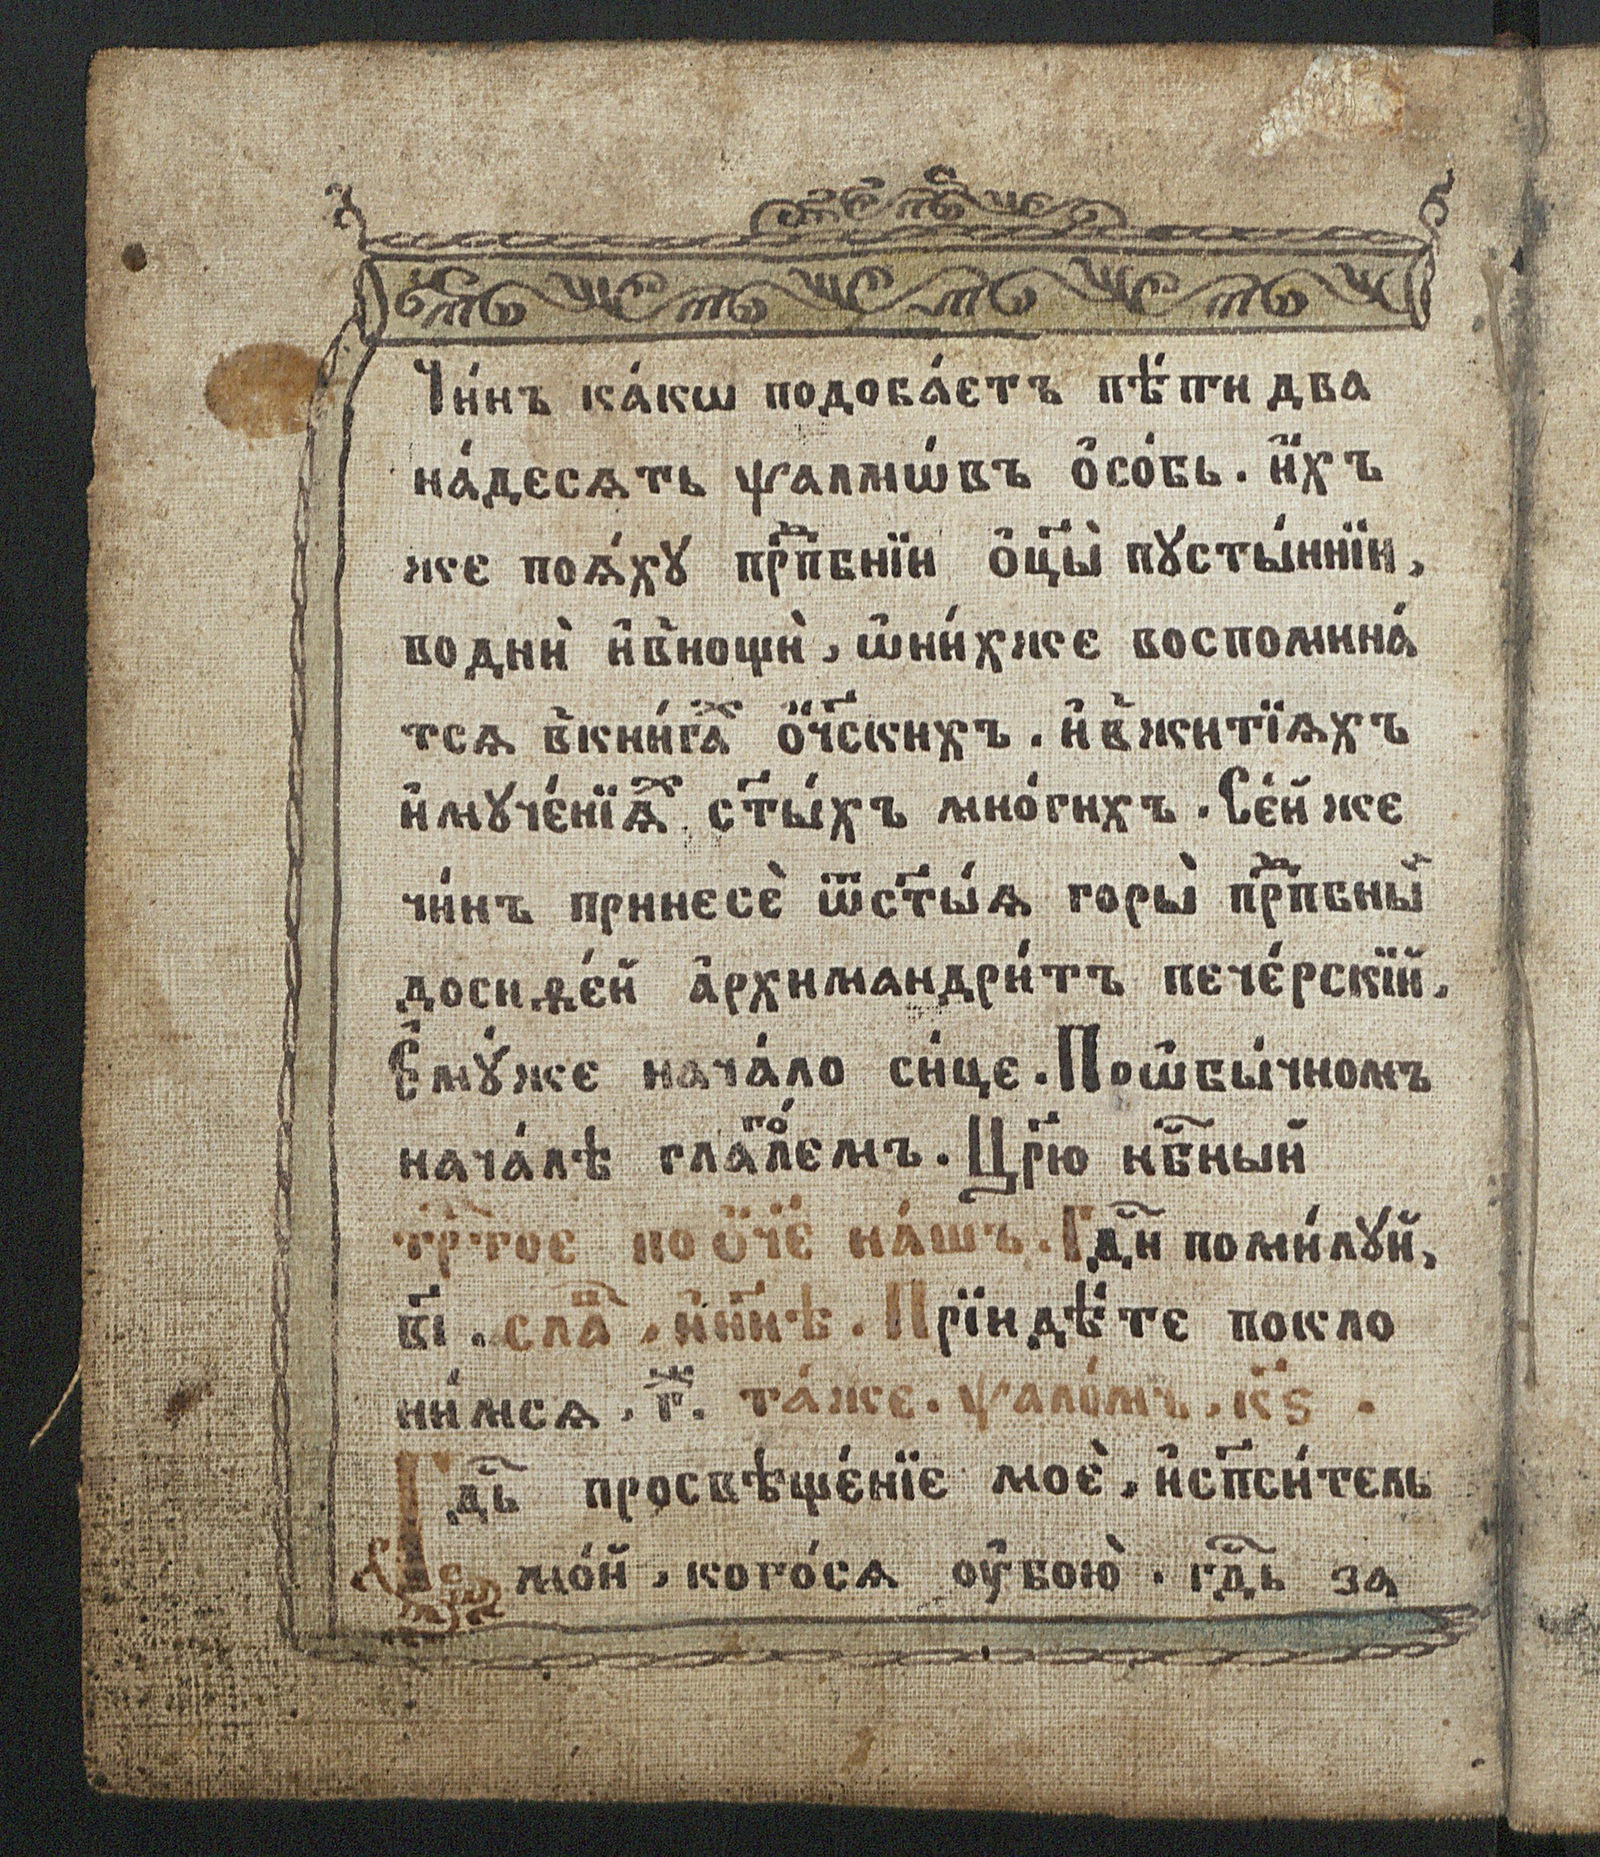 Чи́нъ ка́кѡ подоба́єтъ пѣ́ти два
на́десѧть ѱалмѡ́въ ѻ҆со́бь . и҆́хъ
же поѧ́хꙋ прⷣпбнїи ѻ҆ц҃ы̀ пꙋсты́ннїи,
во днѝ и҆в̾нощѝ, ѡ҆ни́хже воспомина́
тсѧ в̾кни́гаⷯ ѻ҆́ч҃скихъ . и҆в̾житїѧхъ
и҆мꙋче́нїѧⷯ ст҃ы́хъ мно́гихъ . Се́й же
чи́нъ принесѐ ѿст҃ы́ѧ горы̀ прⷣпбныⷨ
досиѳе́й а҆рхимандри́тъ пече́рскїй.
Е҆мꙋ́же нача́ло си́це . Поѡ҆бы́чномъ
нача́лѣ глаго́лемъ . Цр҃ю нб҃ный
трⷭ҇тое по ѻ҆́ч҃е на́шъ . Гдⷭ҇и поми́лꙋй,
в҃і . слаⷡ҇ , и҆нн҃ѣ . Прїидѣ́те покло
ни́мсѧ , г҃ⷤ . та́же . ѱало́мъ , к҃ѕ .
Гдⷭ҇ь просвѣще́нїе моѐ , и҆сп҃си́тель
мо́й , кого́сѧ оу҆бою̀ . гдⷭ҇ь за